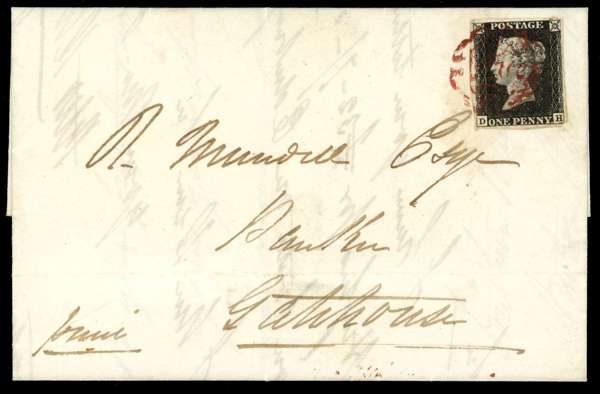 POSTAGE
D ONE PENNY H
R Mundell Esqr
Banker
Gatehouse